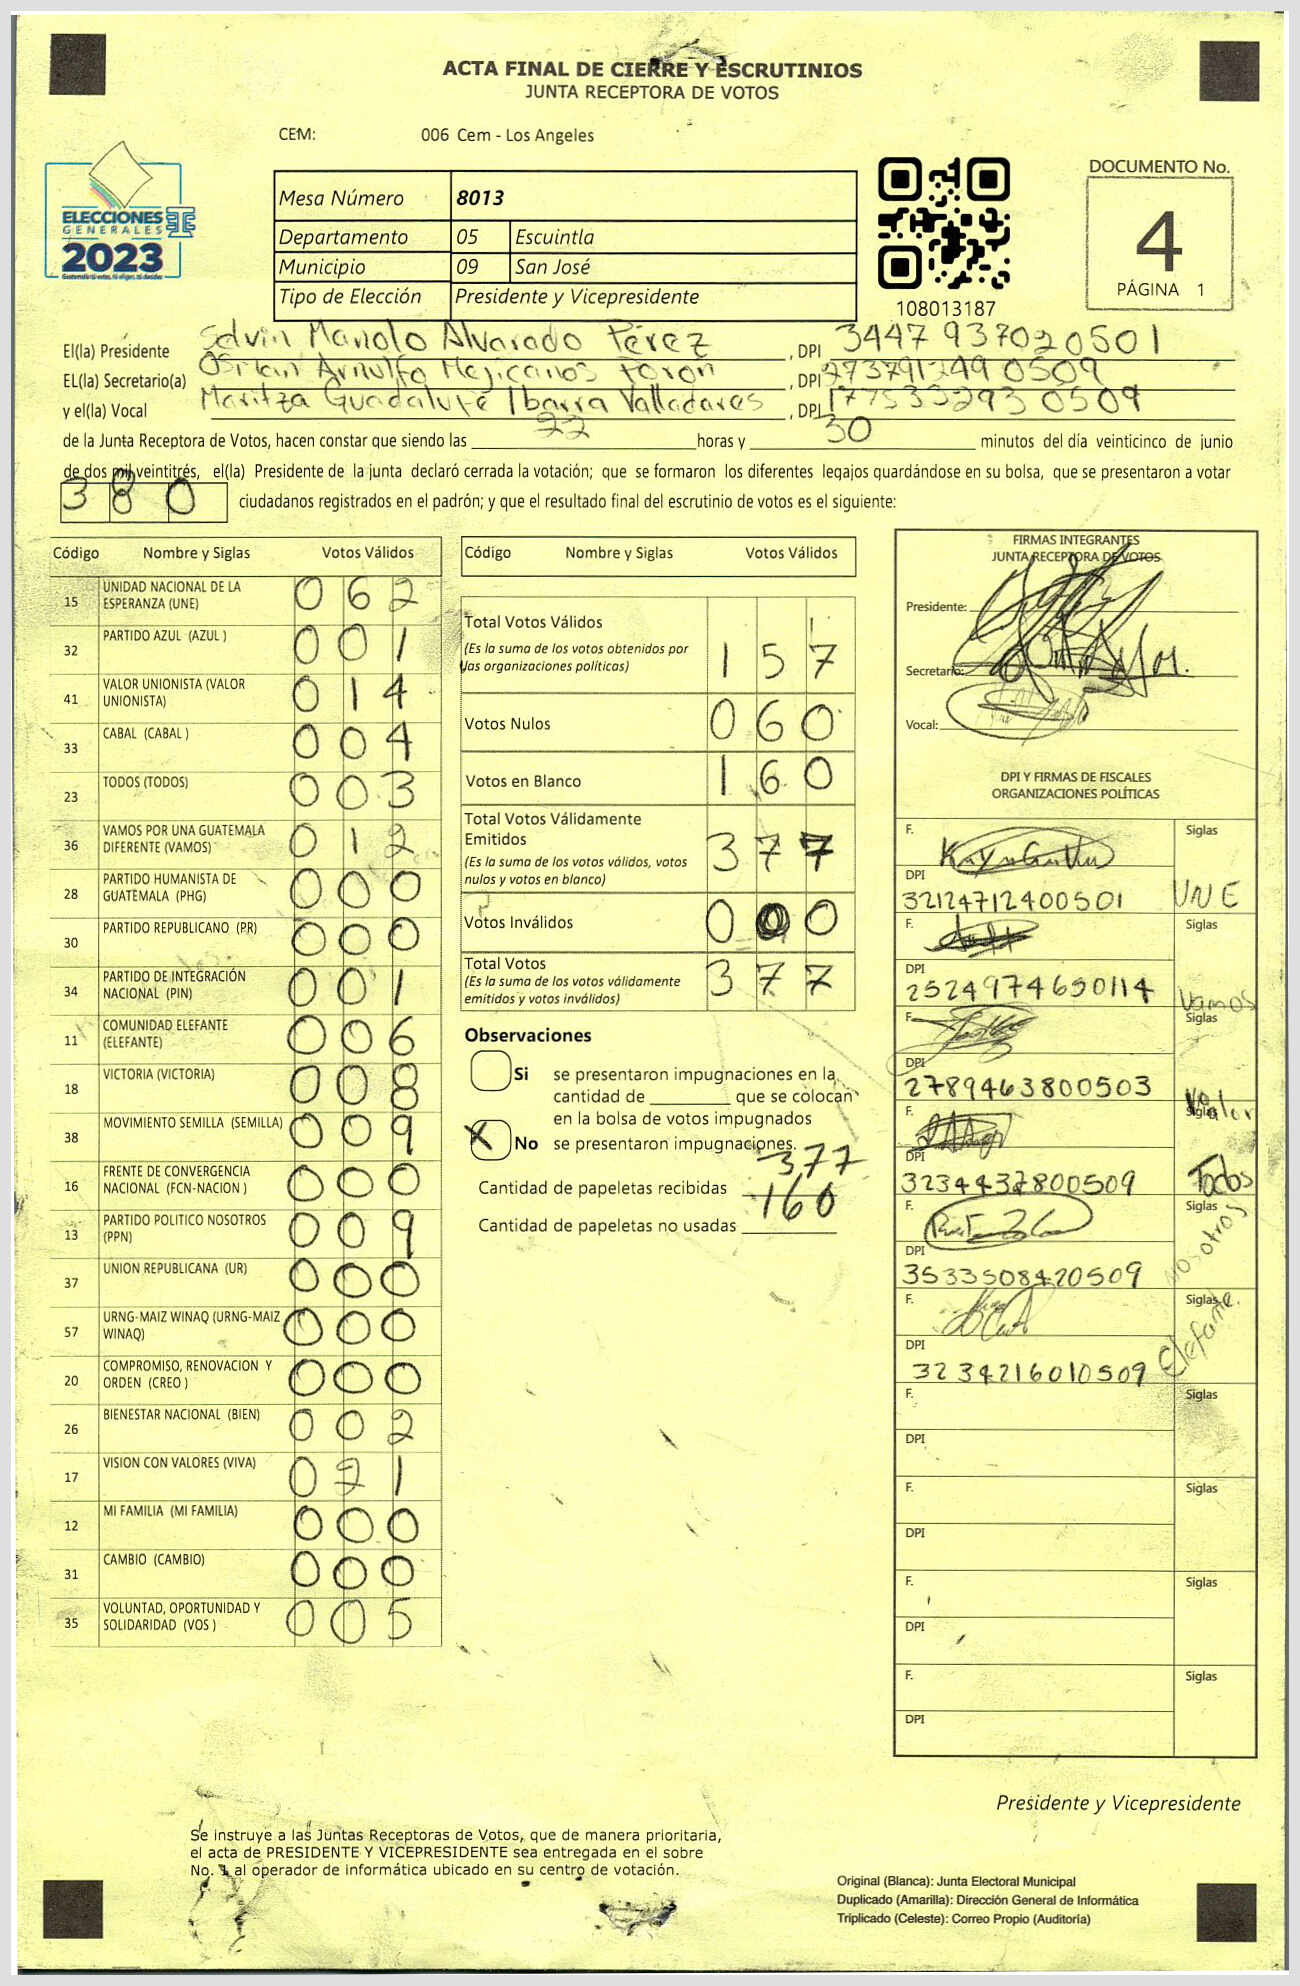 ACTA FINAL DE CIERRE Y ESCRUTINIOS
JUNTA RECEPTORA DE VOTOS
CEM: 006 Cem - Los Angeles
ELECCIONES
GENERALES
2023
Mesa Número 8013
Departamento 05 Escuintla
Municipio 09 San José
Tipo de Elección Presidente y Vicepresidente
108013187
DOCUMENTO No.
4
PÁGINA 1
El(la) Presidente Edvin Manolo Alvarado Pérez , DPI 3447937020501
EL(la) Secretario(a) Osman Arnulfo Mejicanos , DPI 2737912490509
y el(la) Vocal Maritza Guadalupe Ibarra Valladares , DPI 1775332930509
de la Junta Receptora de Votos, hacen constar que siendo las 22 horas y 30 minutos del día veinticinco de junio
de dos mil veintitrés, el(la) Presidente de la junta declaró cerrada la votación; que se formaron los diferentes legajos quardándose en su bolsa, que se presentaron a votar
380 ciudadanos registrados en el padrón; y que el resultado final del escrutinio de votos es el siguiente:
Código Nombre y Siglas Votos Válidos
15 UNIDAD NACIONAL DE LA ESPERANZA (UNE) 062
32 PARTIDO AZUL (AZUL ) 001
41 VALOR UNIONISTA (VALOR UNIONISTA) 014
33 CABAL (CABAL ) 004
23 TODOS (TODOS) 003
36 VAMOS POR UNA GUATEMALA DIFERENTE (VAMOS) 012
28 PARTIDO HUMANISTA DE GUATEMALA (PHG) 000
30 PARTIDO REPUBLICANO (PR) 000
34 PARTIDO DE INTEGRACIÓN NACIONAL (PIN) 001
11 COMUNIDAD ELEFANTE (ELEFANTE) 006
18 VICTORIA (VICTORIA) 008
38 MOVIMIENTO SEMILLA (SEMILLA) 009
16 FRENTE DE CONVERGENCIA NACIONAL (FCN-NACION ) 000
13 PARTIDO POLITICO NOSOTROS (PPN) 009
37 UNION REPUBLICANA (UR) 000
57 URNG-MAIZ WINAQ (URNG-MAIZ WINAQ) 000
20 COMPROMISO, RENOVACION Y ORDEN (CREO ) 000
26 BIENESTAR NACIONAL (BIEN) 002
17 VISION CON VALORES (VIVA) 021
12 MI FAMILIA (MI FAMILIA) 000
31 CAMBIO (CAMBIO) 000
35 VOLUNTAD, OPORTUNIDAD Y SOLIDARIDAD (VOS ) 005
Código Nombre y Siglas Votos Válidos
Total Votos Válidos 157
(Es la suma de los votos obtenidos por
las organizaciones políticas)
Votos Nulos 060
Votos en Blanco 160
Total Votos Válidamente
Emitidos 377
(Es la suma de los votos válidos, votos
nulos y votos en blanco)
Votos Inválidos 000
Total Votos 377
(Es la suma de los votos válidamente
emitidos y votos inválidos)
Observaciones
Si se presentaron impugnaciones en la
cantidad de ________ que se colocan
en la bolsa de votos impugnados
X No se presentaron impugnaciones.
Cantidad de papeletas recibidas 377
Cantidad de papeletas no usadas 160
FIRMAS INTEGRANTES
JUNTA RECEPTORA DE VOTOS
Presidente:
Secretario:
Vocal:
DPI Y FIRMAS DE FISCALES
ORGANIZACIONES POLÍTICAS
F. Siglas
DPI 32124712400501 UNE
F. Siglas
DPI 2524974650114 Vamos
F. Siglas
DPI 2789463800503 Valor
F. Siglas
DPI 3234437800509 Todos
F. Siglas
DPI 3533508420509 Nosotros
F. Siglas
DPI 3234216010509 Elefante
F. Siglas
DPI
F. Siglas
DPI
F. Siglas
DPI
F. Siglas
DPI
Presidente y Vicepresidente
Se instruye a las Juntas Receptoras de Votos, que de manera prioritaria,
el acta de PRESIDENTE Y VICEPRESIDENTE sea entregada en el sobre
No. 1 al operador de informática ubicado en su centro de votación.
Original (Blanca): Junta Electoral Municipal
Duplicado (Amarilla): Dirección General de Informática
Triplicado (Celeste): Correo Propio (Auditoría)